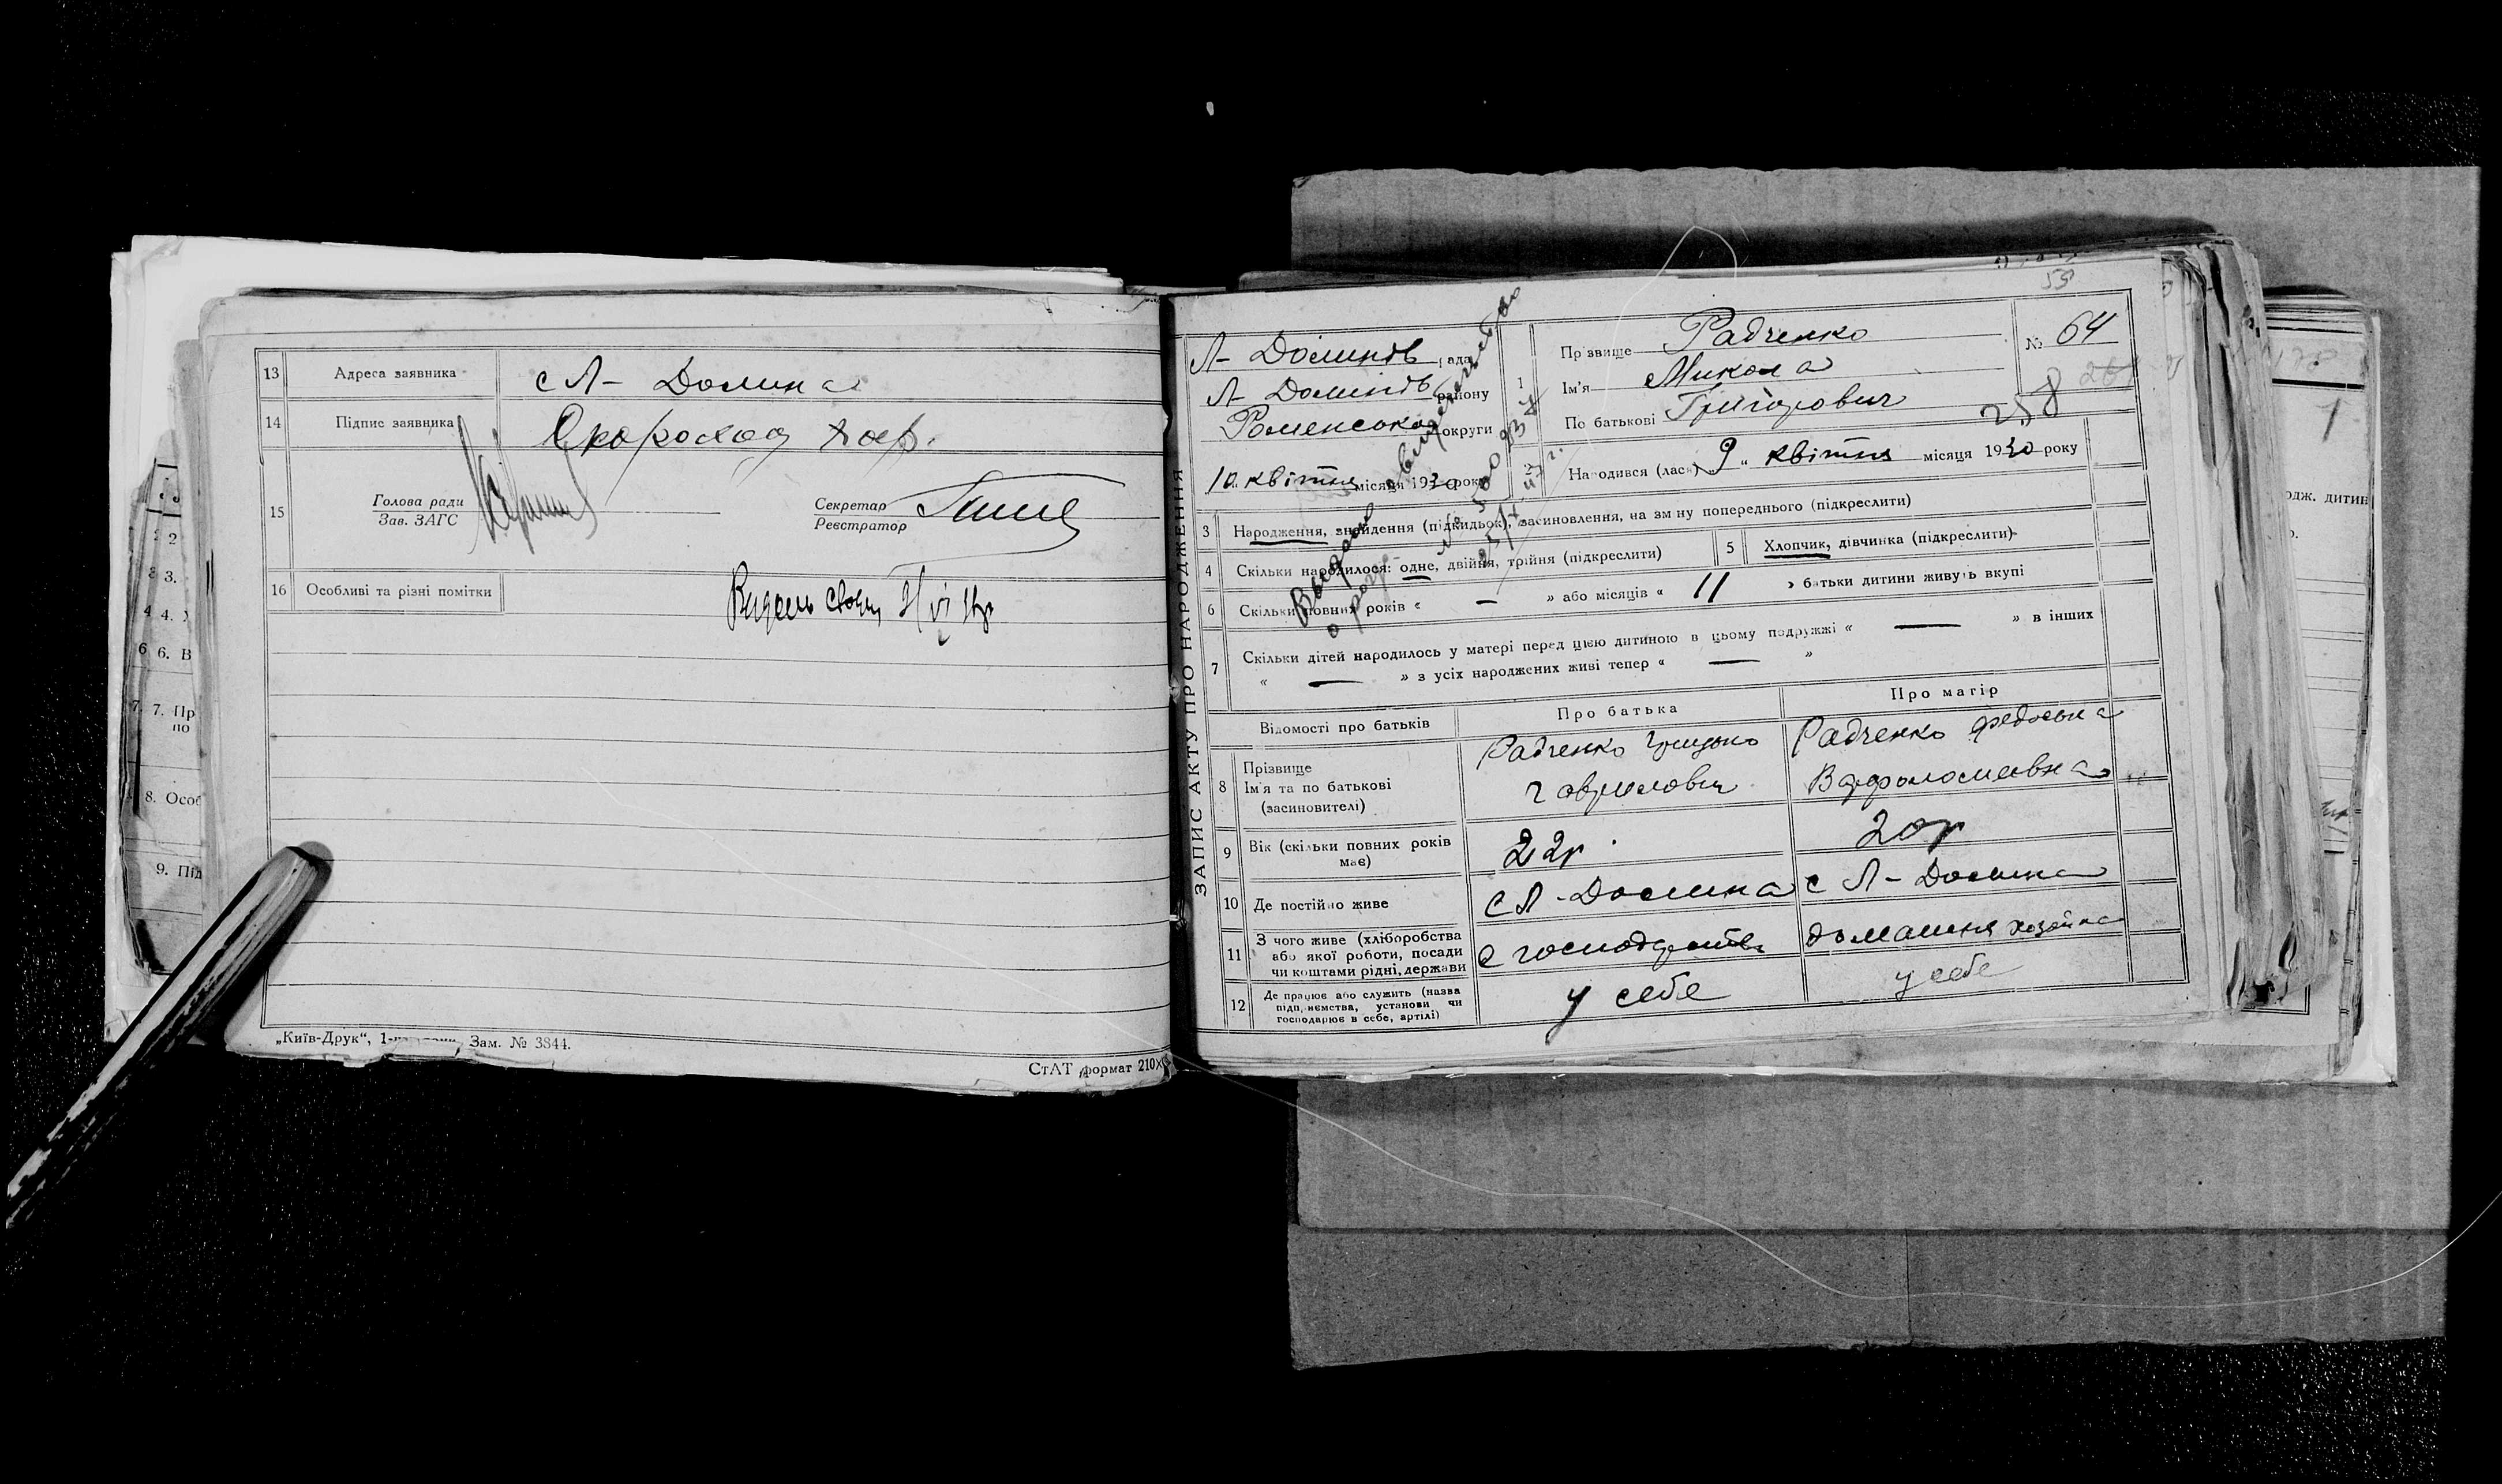 13 Адреса заявника с Л- Долина
14 Підпис заявника Скороход
15 Голова ради
Зав. ЗАГС
Секретар
Реєстратор
16 Особливі та різні помітки
„Київ-Друк“, 1- Зам. № 3844.
СтАТ формат 210×
2
3.
4.
6. В
7. Пр
по
8. Особ
9. Під
ЗАПИС АКТУ ПРО НАРОДЖЕННЯ
59
Л- Долинськ рада
Л- Долинськ району
Роменської округи
10 квітня місяця 1930 року
1 Прізвище Радченко
Ім'я Микола
По батькові Григорович
№ 64
258
2 Народився (лась) „9„ квітня місяця 1930 року
3 Народження, знайдення (підкидьок), засиновлення, на зміну попереднього (підкреслити)
4 Скільки народилося: одне, двійня, трійня (підкреслити)
5 Хлопчик, дівчинка (підкреслити)
6 Скільки повних років « — » або місяців « 11 » батьки дитини живуть вкупі
7 Скільки дітей народилось у матері перед цією дитиною в цьому подружжі « — » в інших
« — » з усіх народжених живі тепер « — »
Відомості про батьків Про батька Про матір
8 Прізвище
Ім'я та по батькові
(засиновителі)
Радченко Грицько
Гаврилович
Радченко Федоська
Варфоломеевна
9 Вік (скільки повних років
має)
22р.
20р
10 Де постійно живе с Л-Долина с Л- Долина
11 З чого живе (хліборобства
або якої роботи, посади
чи коштами рідні, держави
с господарства
домашня хозяйка
12 Де працює або служить (назва
підприємства, установи чи
господарює в себе, артілі)
у себе
у себе
одж. дитин